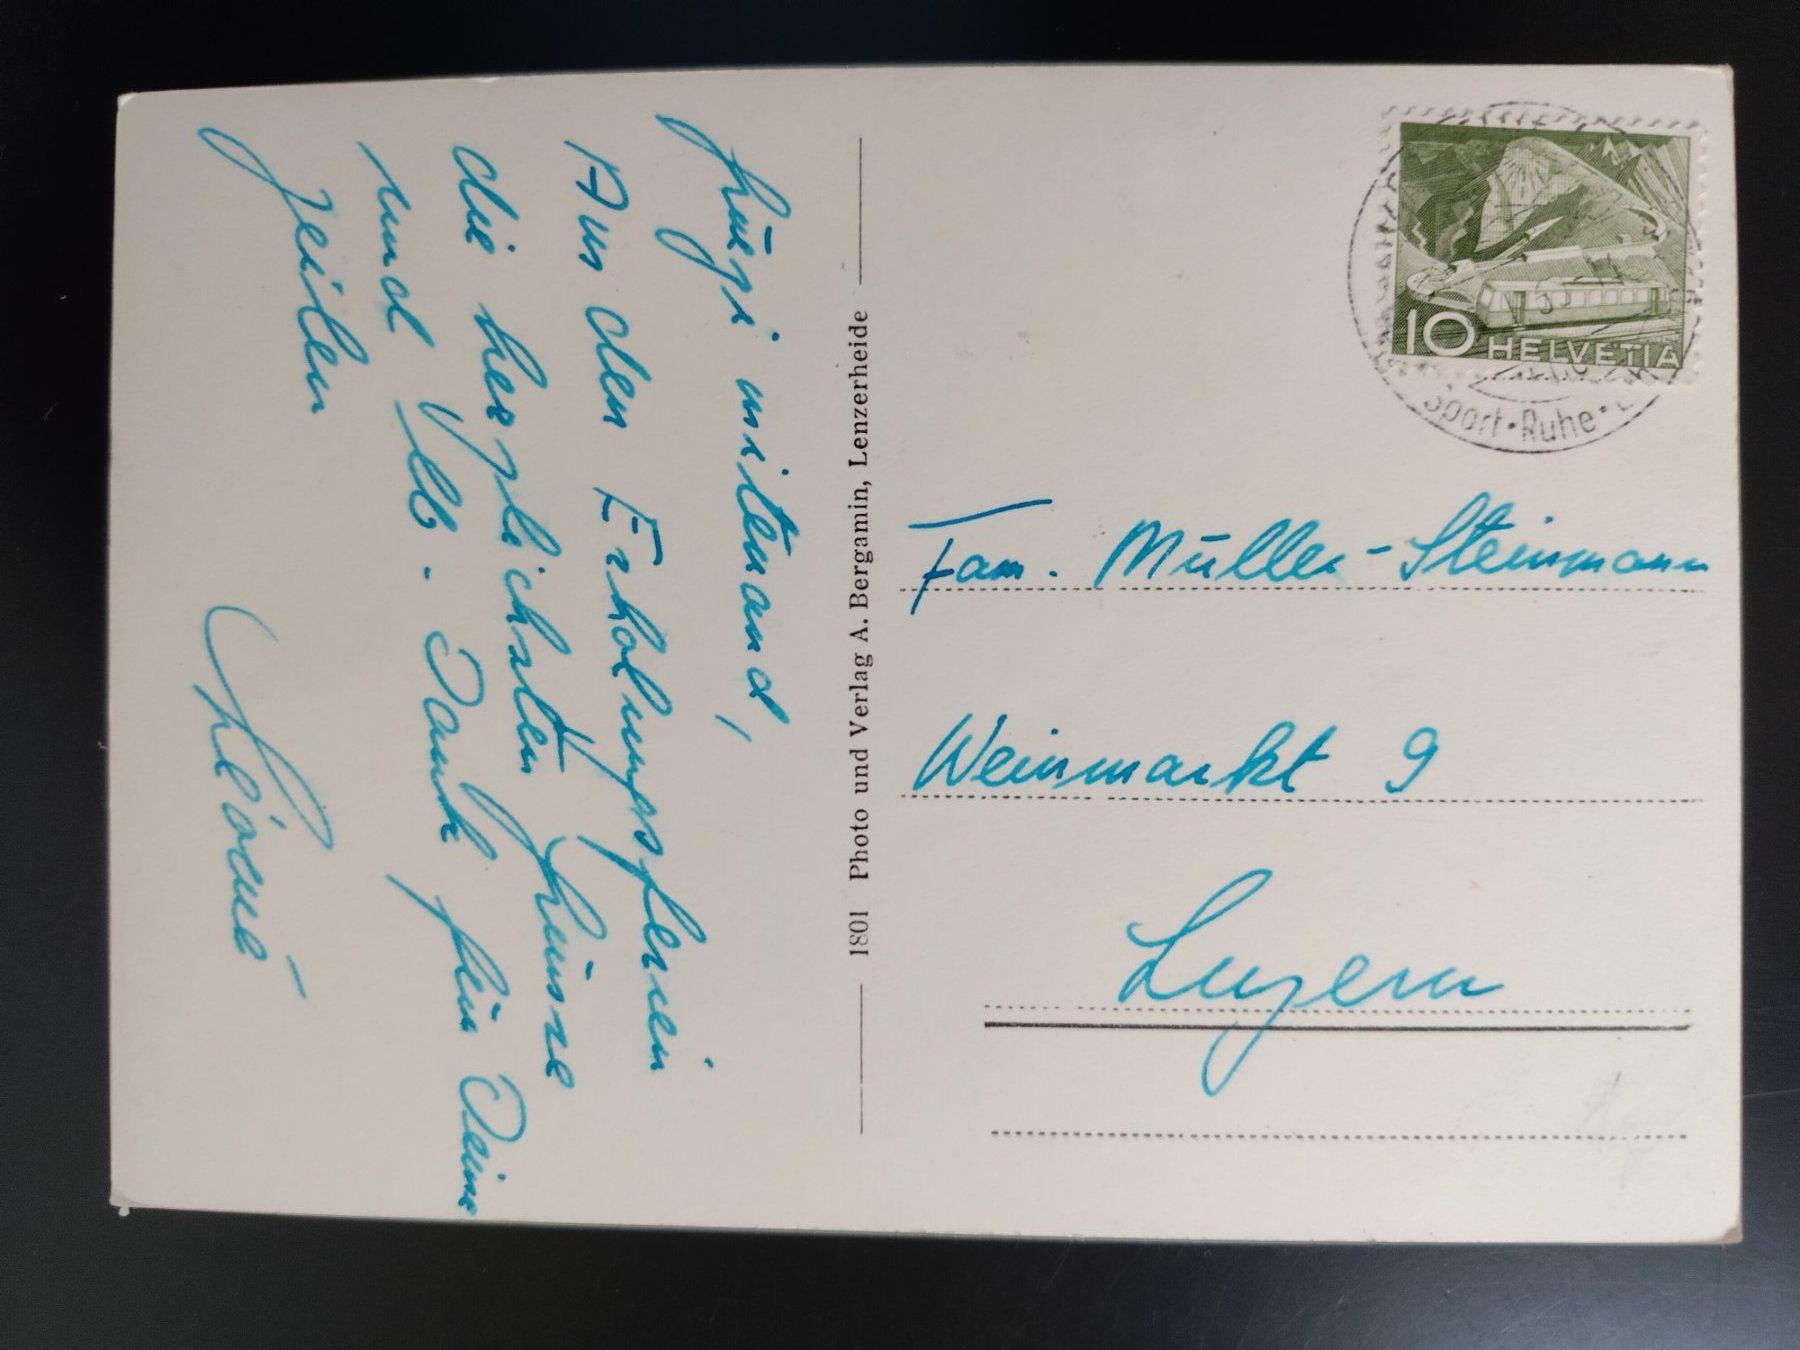 Grüezi mitenand,
Aus den Erholungsferien
die herzlichsten Grüsse
und lb. Dank für Deine
Zeilen
1801 Photo und Verlag A. Bergamin, Lenzerheide
10 HELVETIA
Sport • Ruhe •
Fam. Müller-Steinmann
Weinmarkt 9
Luzern